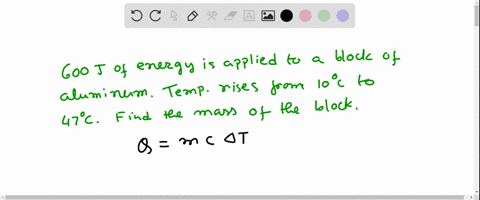 600 J of energy is applied to a block of
aluminum. Temp. rises from 10°C to
47°C. Find the mass of the block.
Q = m c ΔT